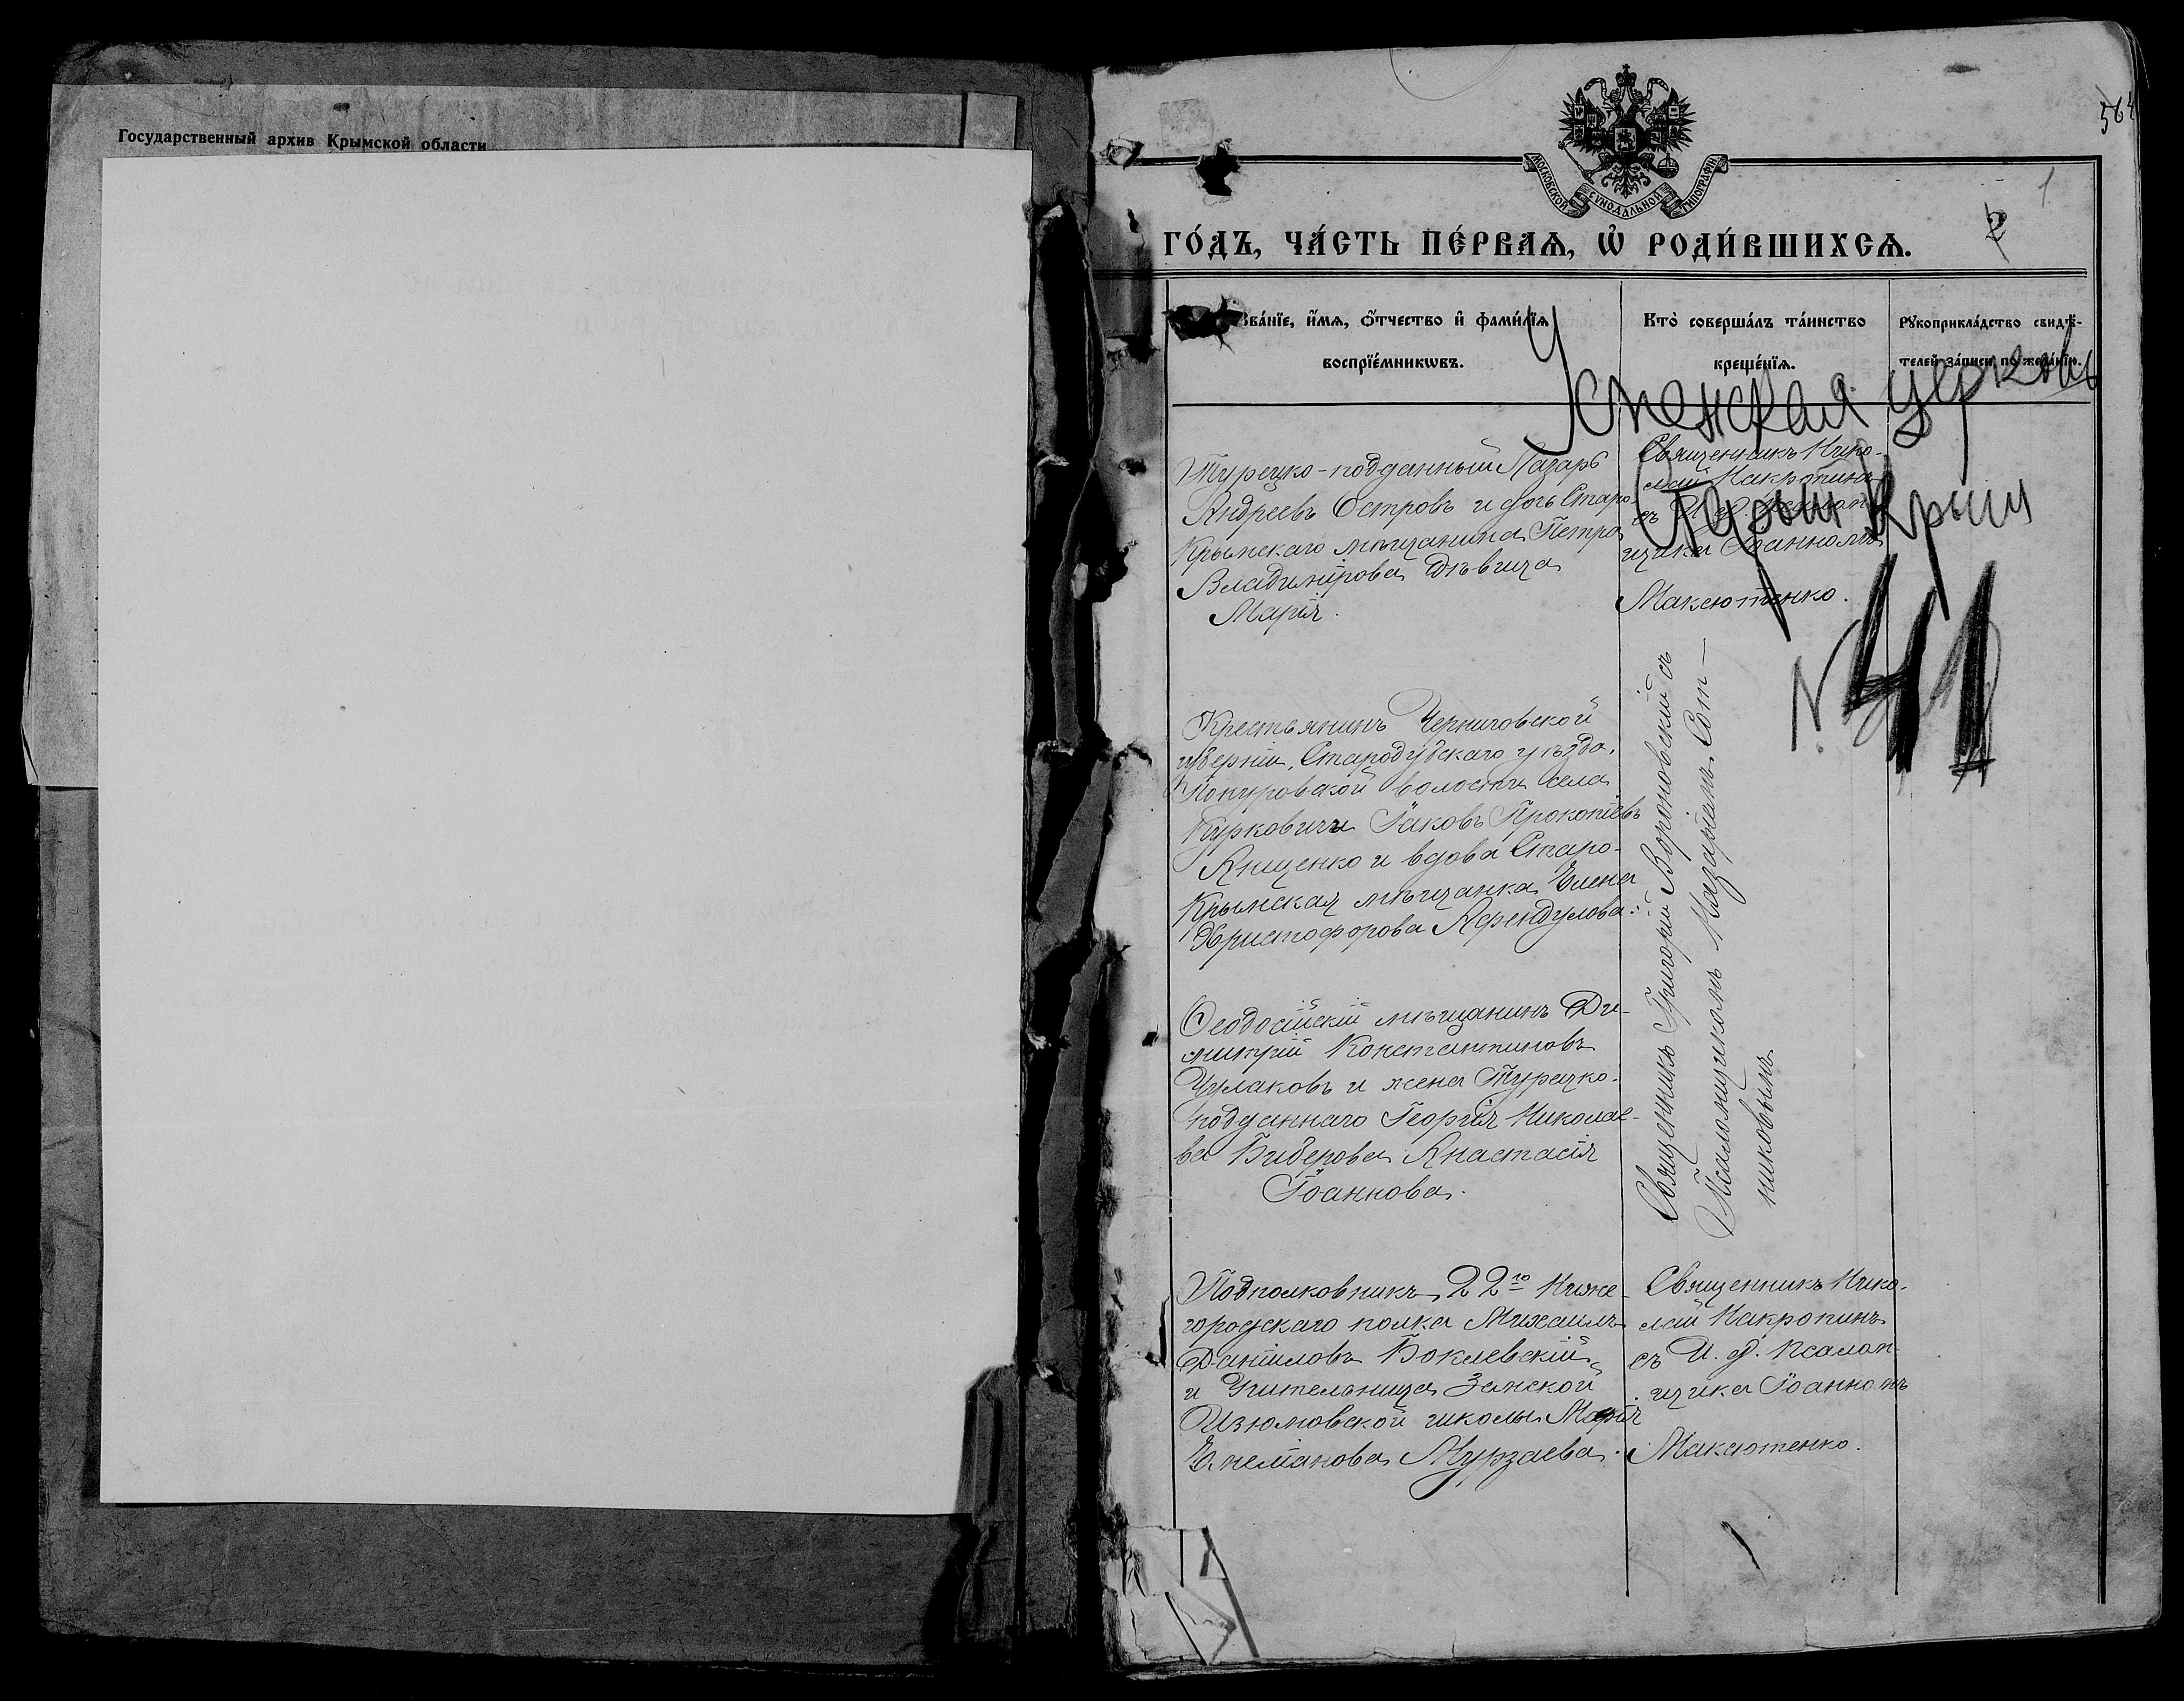 Государственный архив Крымской области
564
МОСКОВСКОЙ СѴНОДАЛЬНОЙ ТИПОГРАФІИ
1
2
ГО́ДЪ, ЧА́СТЬ ПЕ́РВАѦ, Ѽ РОДИ́ВШИХСѦ.
зва́нїе, и҆́мѧ, ѻ҆́тчество и҆ фами́лїѧ
воспрїе́мникѡвъ.
Кто̀ соверша́лъ та́инство
креще́нїѧ.
Рꙋкоприкла́дство свидѣ́-
телей за́писи по жела́нїю.
Успенская церковь
Старый Крым
N 41
Турецко-подданный Лазарь
Андреевъ Островъ и дочь Старо-
Крымскаго мѣщанина Петра
Владимірова дѣвица
Марія.
Священникъ Нико-
лай Макропинъ
съ И. д. Псалом-
щика Іоанномъ
Максютенко.
Крестьянинъ Черниговской
губерніи, Стародубскаго уѣзда,
волости села
Курковичи Іаковъ Прокопіевъ
Янщенко и вдова Старо-
Крымская мѣщанка Елена
Христофорова Афендулова.
Священникъ Григорій Вороновскій съ
Псаломщикомъ Назаріемъ Сот-
никовымъ.
Ѳеодосійскій мѣщанинъ Ди-
митрій Константиновъ
Чулаковъ и жена Турецко-
подданнаго Георгія Николае-
ва Биберова Анастасія
Іоаннова.
Подполковникъ 22го Ниже-
городскаго полка Михаилъ
Даніиловъ Боклевскій
и Учительница Земской
Изюмовской школы Марія
Мурзаева.
Священникъ Нико-
лай Макропинъ
съ И. д. Псалом-
щика Іоанномъ
Максютенко.